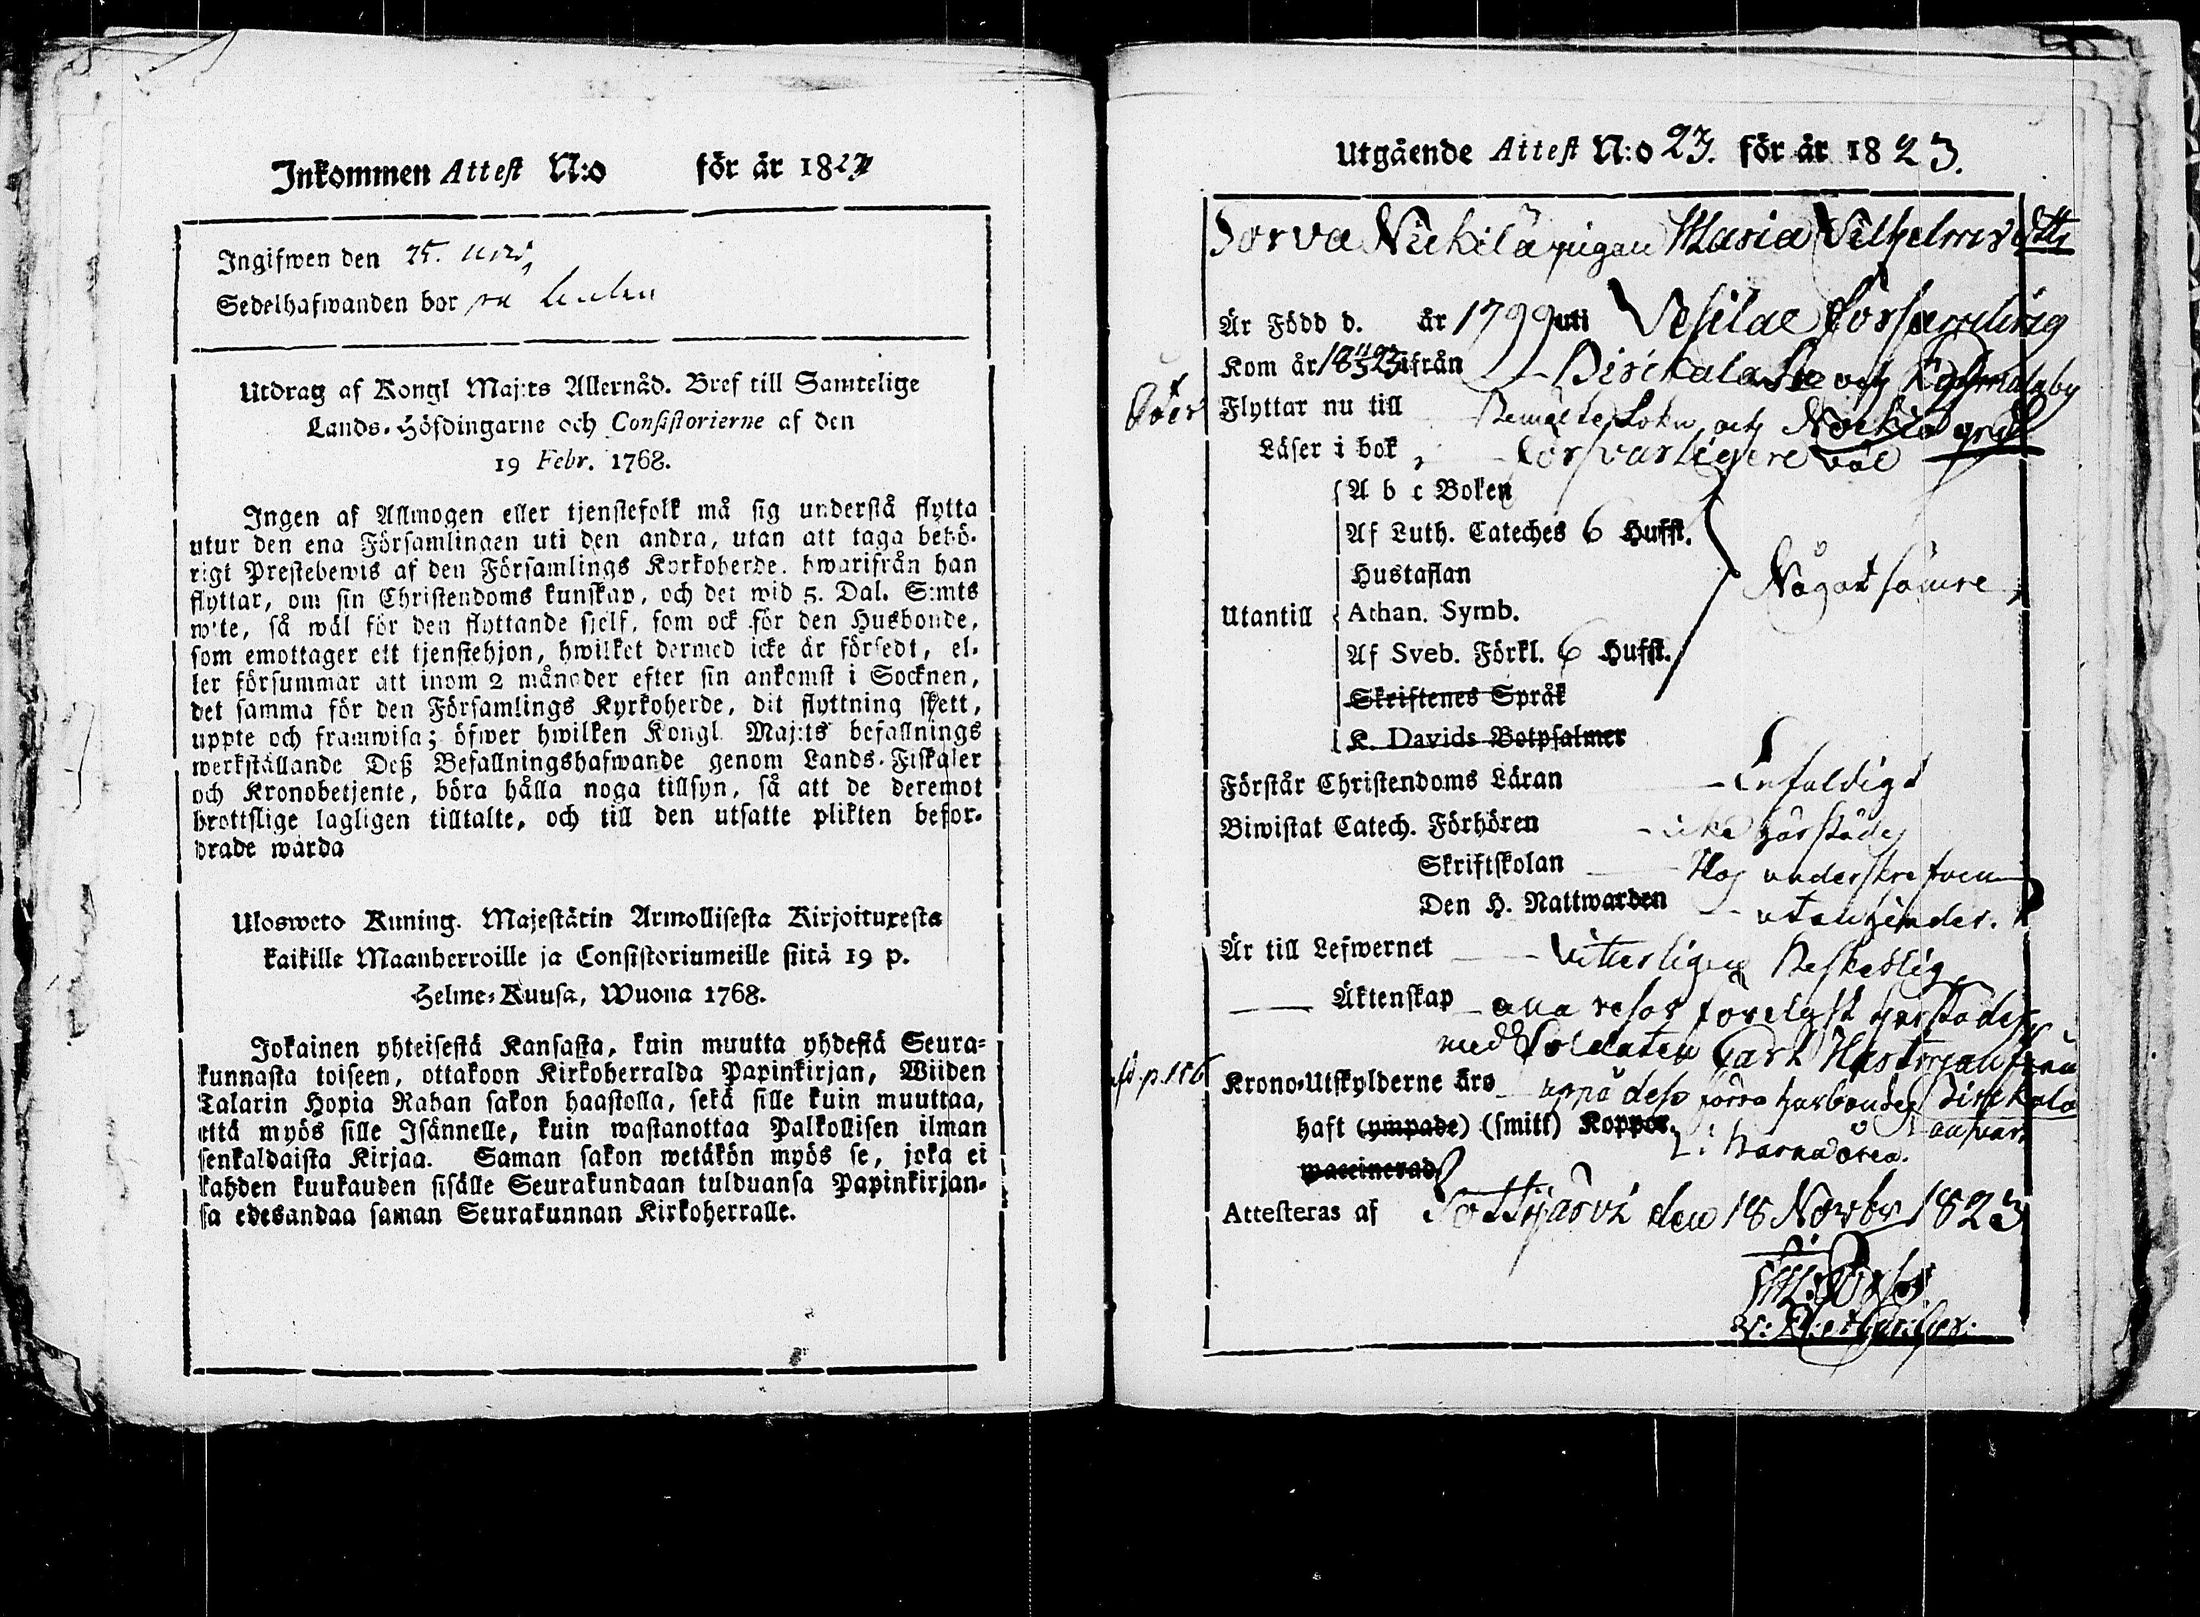 Inkommen Attest N:o för år 1823
Ingifwen den 25. 
Sedelhafwanden bor
Utdrag af Kongl Maj:ts Allernåd. Bref till Samtelige
Lands-Höfdingarne och Consistorierne af den
19 Febr. 1768.
Ingen af Allmogen eller tjenstefolk må sig understå flytta
utur den ena Församlingen uti den andra, utan att taga behö-
rigt Prestebewis af den Församlings Kyrkoherde, hwarifrån han
flyttar, om sin Christendoms kunskap, och det wid 5. Dal. S:mts
wite, så wäl för den flyttande sjelf, som ock för den Husbonde,
som emottager ett tjenstehjon, hwilket dermed icke är försedt, el-
ler försummar att inom 2 månader efter sin ankomst i Socknen,
det samma för den Församlings Kyrkoherde, dit flyttning skett,
uppte och framwisa; öfwer hwilken Kongl. Maj:ts befallnings
werkställande Deß Befallningshafwande genom Lands-Fiskaler
och Kronobetjente, böra hålla noga tillsyn, så att de deremot
brottslige lagligen tilltalte, och till den utsatte plikten befor-
drade warda
Uloswето Kuning. Majestätin Armollisesta Kirjoituxesta
kaikille Maanherroille ja Consistoriumeille siitä 19 p.
Helme-Kuusa, Wuona 1768.
Jokainen yhteisestä Kansasta, kuin muutta yhdestä Seura-
kunnasta toiseen, ottakoon Kirkoherralda Papinkirjan, Wiiden
Talarin Hopia Rahan sakon haastolla, sekä sille kuin muuttaa,
että myös sille Isännelle, kuin wastanottaa Palkollisen ilman
senkaldaista Kirjaa. Saman sakon wetäkön myös se, joka ei
kahden kuukauden sisälle Seurakundaan tulduansa Papinkirjan-
sa edesandaa saman Seurakunnan Kirkoherralle.
Utgående Attest N:o 23. för år 1823.
Sorva Nickilä pigan Maria Vilhelms dttr
Är Född d. år 1799 uti Vesilax församling
Kom år 18 ifrån Birckala Sn och
Flyttar nu till Bemälte Sokn och Nockia
Läser i bok försvarligare väl
A b c Boken
Af Luth. Cateches 6 Hufst.
Hustaflan
Utantill Athan. Symb. Något sämre
Af Sveb. Förkl. 6 Hufst.
Skriftenes Språk
K. Davids Botpsalmer
Förstår Christendoms Läran Enfaldigt
Biwistat Catech. Förhören icke härstädes
Skriftskolan Hos underskrefven
Den H. Nattwarden utan hinder.
Är till Lefwernet vitterligen Beskedlig
Äktenskap
med Soldaten Carl Hastman från
Krono-Utskylderne äro uppå dess förra husbondes Birckala
answar
haft (ympade) (smitt) Koppor. i barnaåren.
waccinerad
Attesteras af Tottijärvi den 18 Novbr 1823